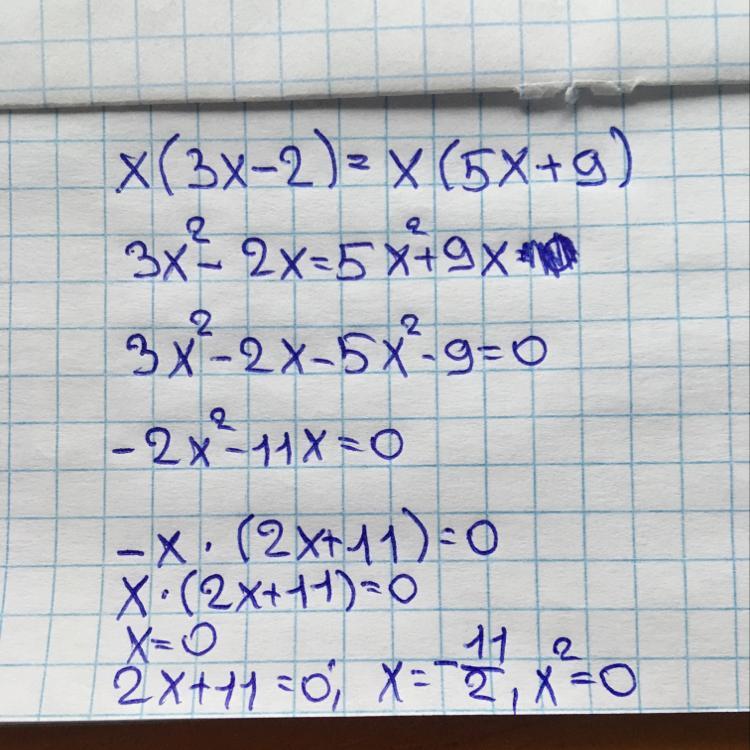 x(3x-2)=x(5x+9)
3x²-2x=5x²+9x
3x²-2x-5x²-9=0
-2x²-11x=0
-x·(2x+11)=0
x·(2x+11)=0
x=0
2x+11=0; x=-11/2, x²=0